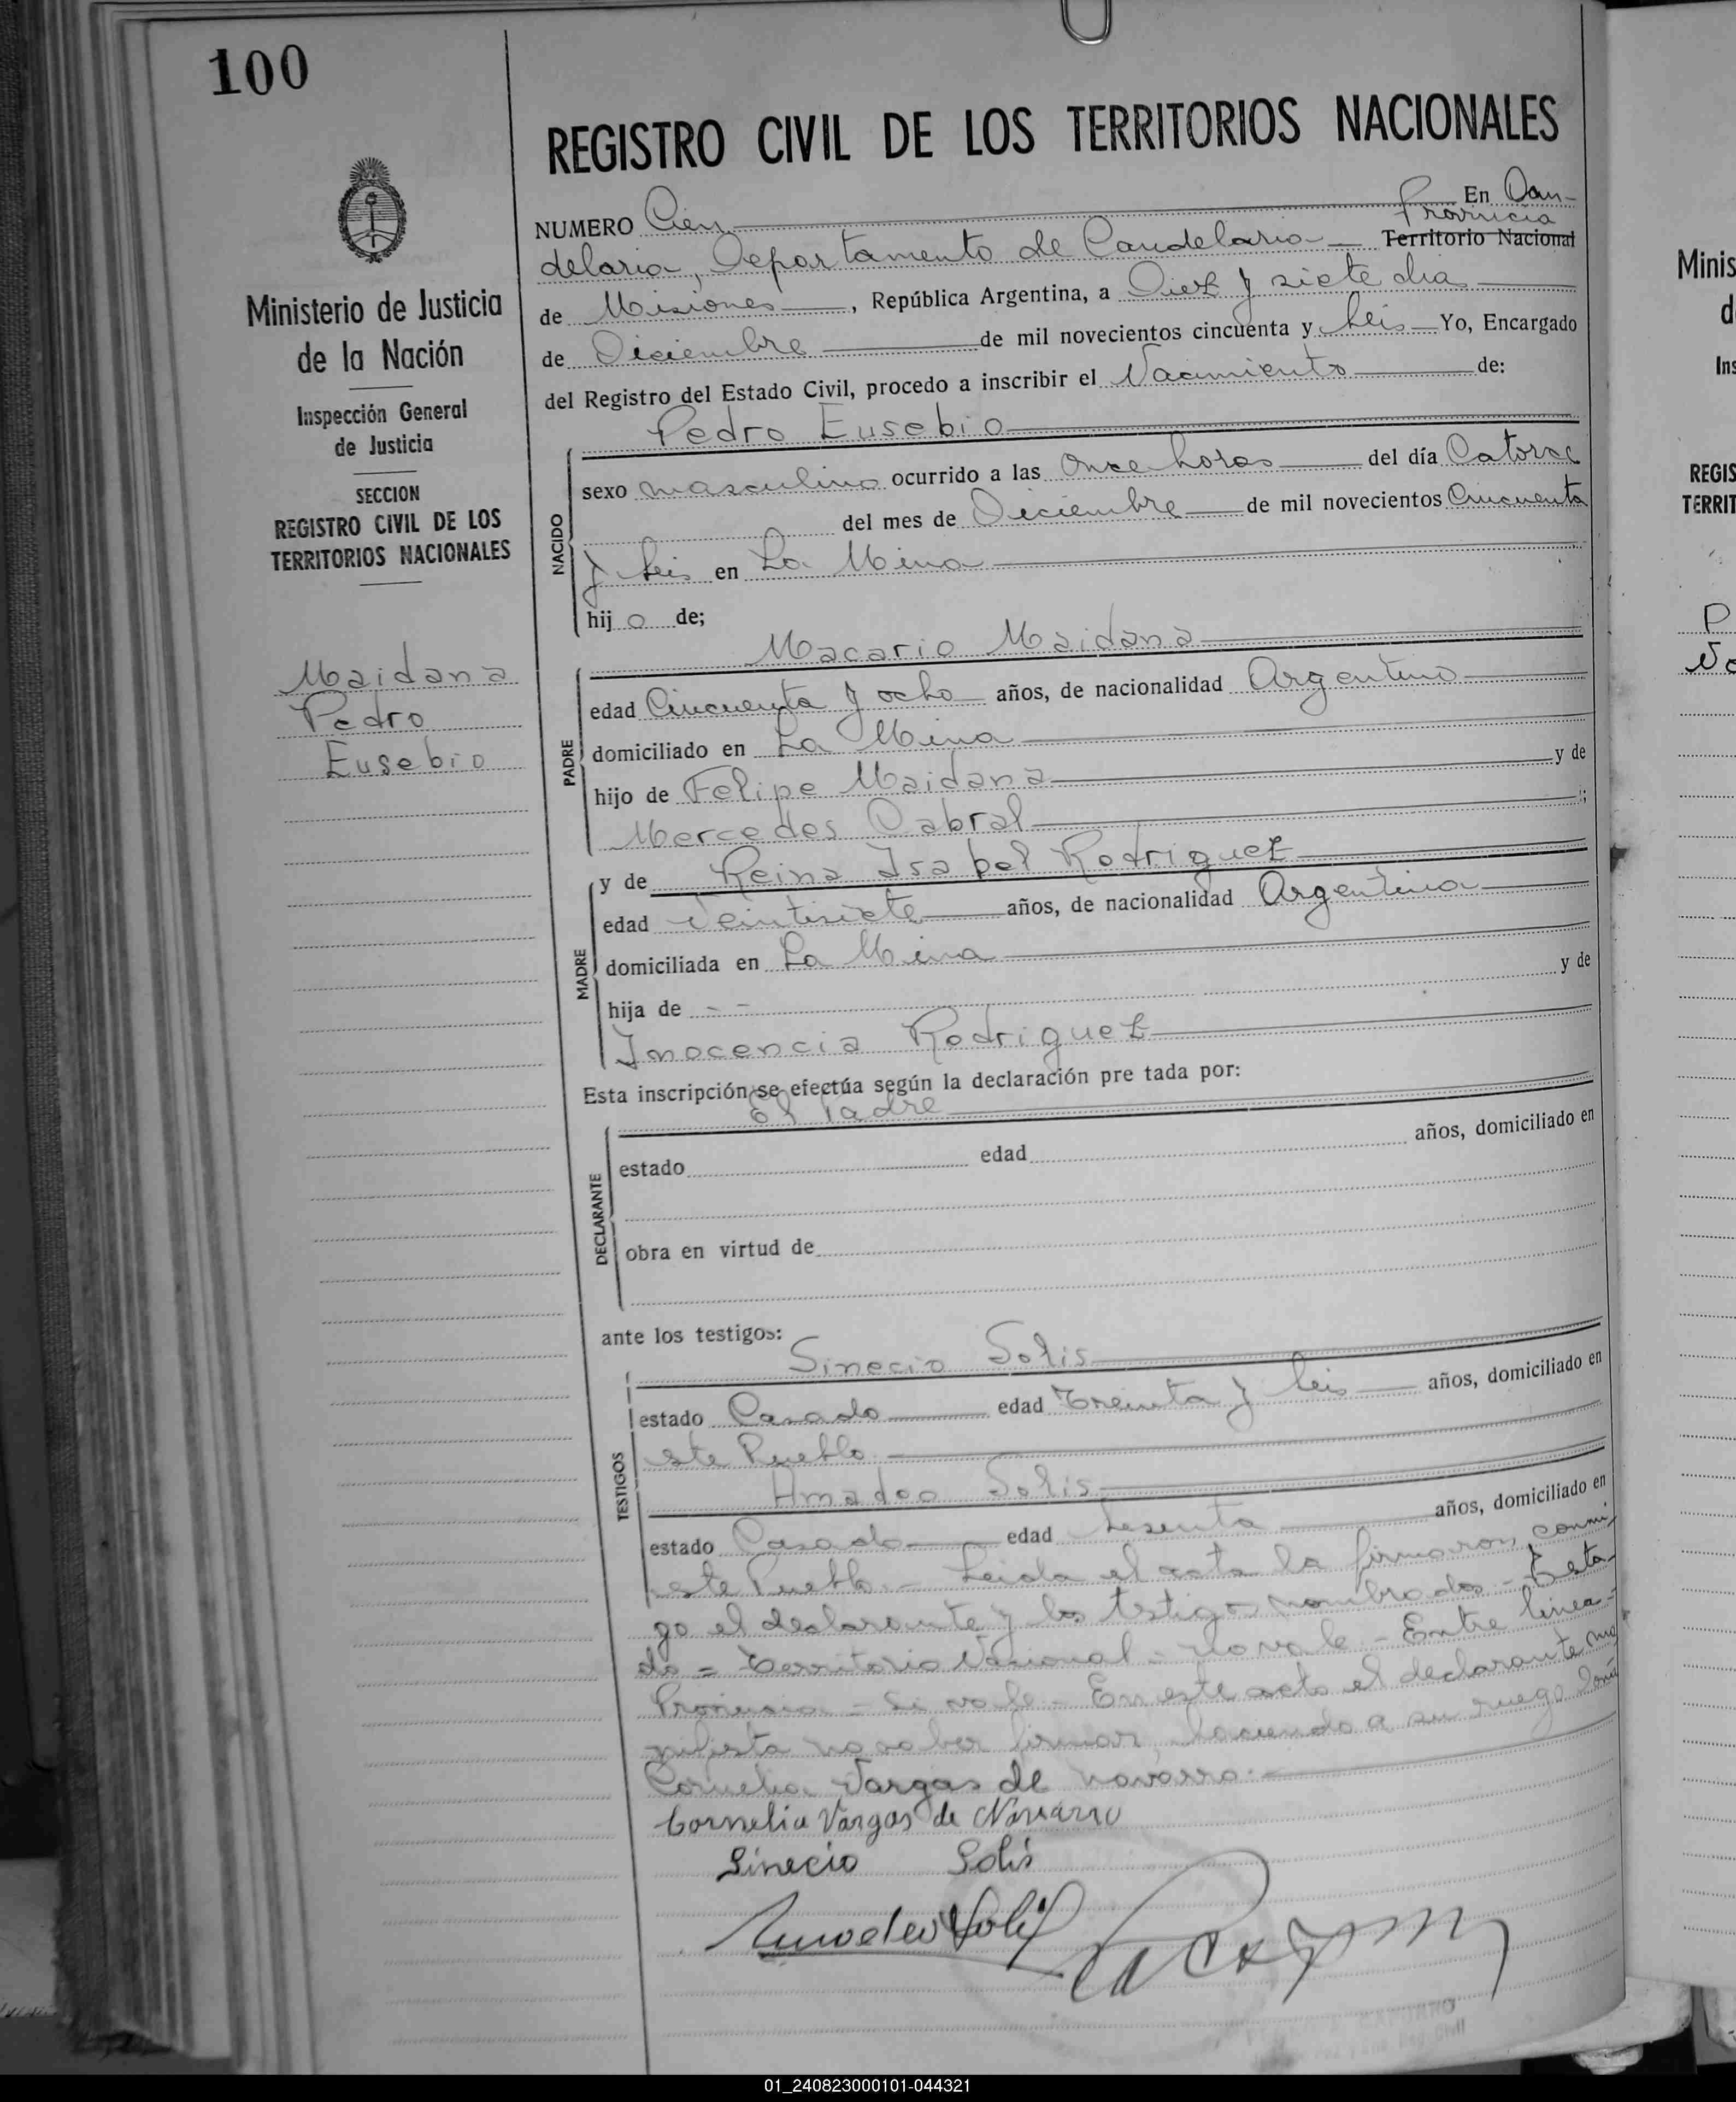 100
REGISTRO CIVIL DE LOS TERRITORIOS NACIONALES
Ministerio de Justicia
de la Nación
Inspección General
de Justicia
SECCION
REGISTRO CIVIL DE LOS
TERRITORIOS NACIONALES
Maidana
Pedro
Eusebio
NUMERO Cien En Can-
Provincia
delaria, Departamento de Candelaria Territorio Nacional
de Misiones, República Argentina, a Diez y siete dia
de Diciembre de mil novecientos cincuenta y seis Yo, Encargado
del Registro del Estado Civil, procedo a inscribir el Nacimiento de:
Pedro Eusebio
NACIDO
sexo masculino ocurrido a las Once horas del día Catorce
del mes de Diciembre de mil novecientos Cincuenta
y seis en La Mina
hij o de;
Macario Maidana
PADRE
edad Cincuenta y ocho años, de nacionalidad Argentino
domiciliado en La Mina
hijo de Felipe Maidana y de
Mercedes Cabral ;
y de Reina Isabel Rodriguez
MADRE
edad Veintisiete años, de nacionalidad Argentina
domiciliada en La Mina
hija de - - y de
Inocencia Rodriguez
Esta inscripción se efectúa según la declaración pre tada por:
El Padre
DECLARANTE
estado edad años, domiciliado en
obra en virtud de
ante los testigos:
Sinecio Solis
TESTIGOS
estado Casado edad Treinta y seis años, domiciliado en
este Pueblo
Amadeo Solis
estado Casado edad Sesenta años, domiciliado en
este Pueblo.- Leida el acta la firmaron conmi-
go el declarante y los testigos nombrados - Testa-
do = Territorio Nacional = no vale - Entre linea-
Provincia - Si vale - En este acto el declarante ma
nifiesta no saber firmar, haciendo a su ruego Doña
Cornelia Vargas de Navarro.-
Cornelia Vargas de Navarro
Sinecio Solis
Amadeo Solis
Minis
d
Ins
REGIS
TERRIT
P
01_240823000101-044321